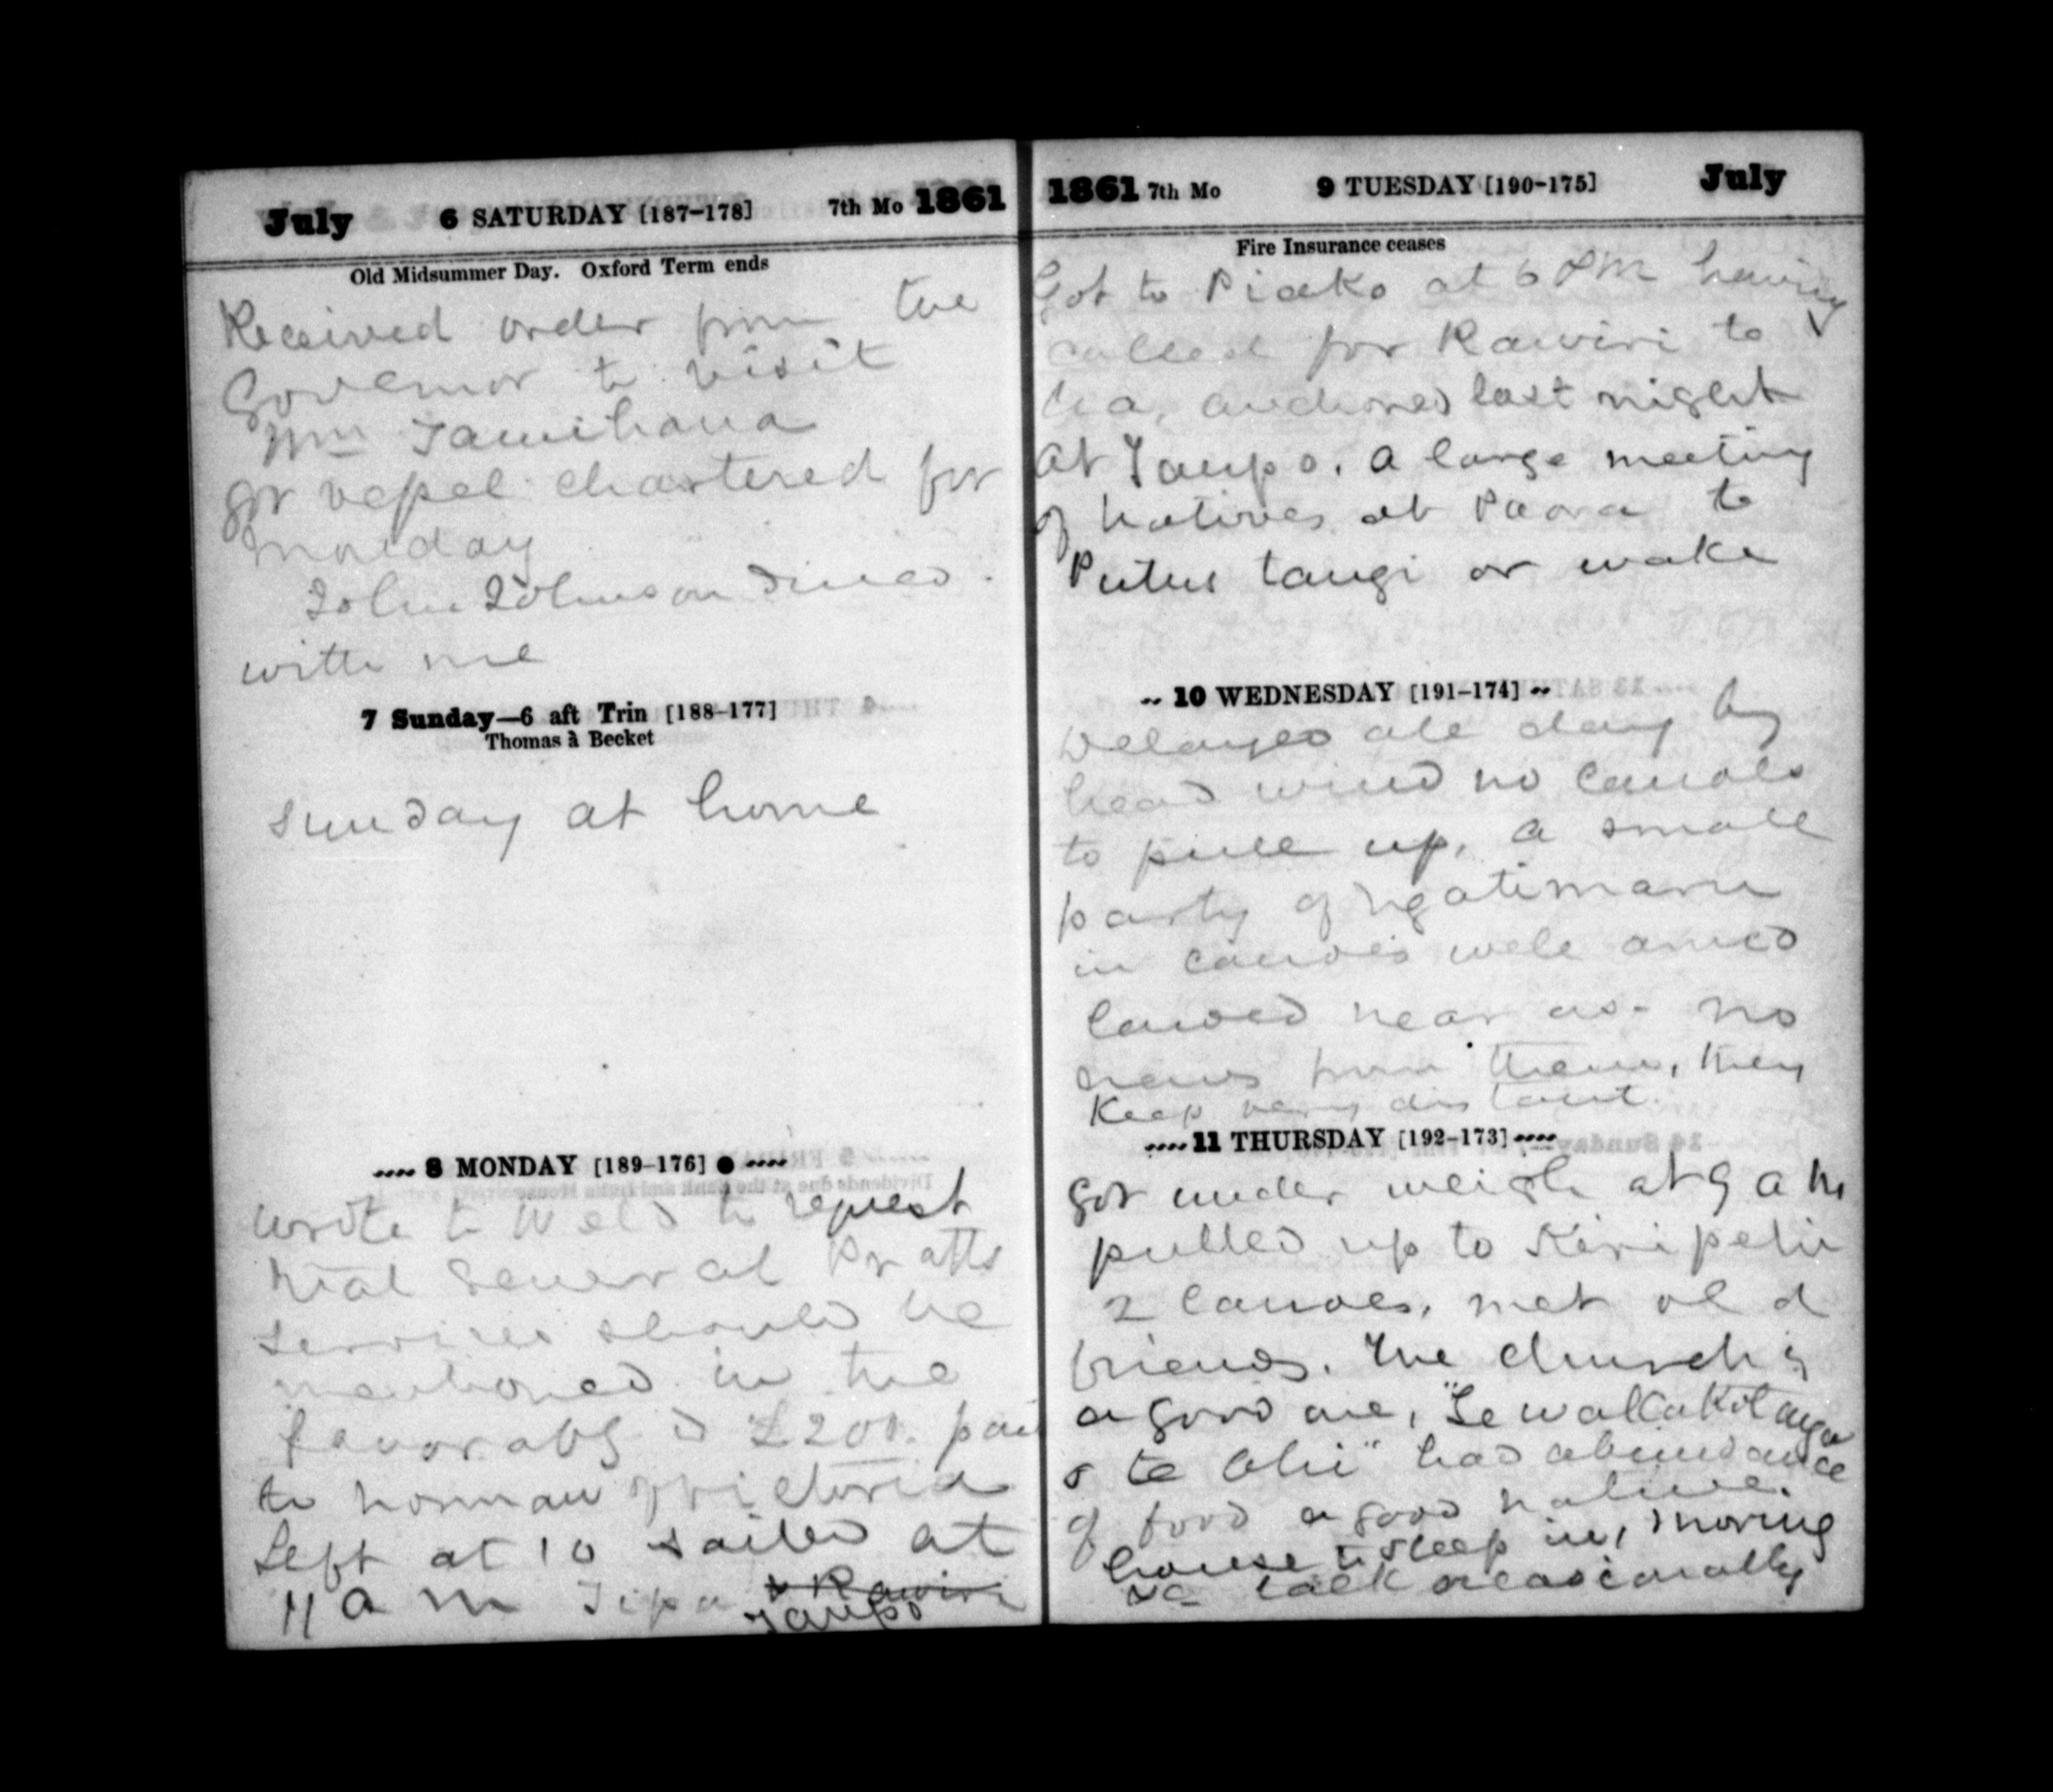 July 6 SATURDAY [187-178] 7th Mo 1861
Old Midsummer Day. Oxford Term ends
Received order from the
Governor to visit
Wm Tamihana
got vessel chartered for
Monday
John Johnson dined
with me
7 Sunday—6 aft Trin [188-177]
Thomas à Becket
Sunday at home
8 MONDAY [189-176]
wrote to Weld to request
that General Pratts
services should be
mentioned in the
favorably & £200. paid
to Norman Victoria
Left at 10 sailed at
11 a m Tipa & Rawiri
Taupo
1861 7th Mo 9 TUESDAY [190-175] July
Fire Insurance ceases
Got to Piako at 6 PM having
called for Rawiri te
Ua, anchored last night
at Taupo. a large meeting
of natives at Paora te
Putus tangi or wake
10 WEDNESDAY [191-174]
Delayed all day by
head wind no canoes
to pull up, a small
party of Ngatimaru
in canoes well armed
landed near us - no
news from them, they
keep very distant.
11 THURSDAY [192-173]
Got under weigh at 9 a m
pulled up to Keripehi
2 canoes. met old
friends. The church is
a good one, "Te
o te Ahi" had abundance
of food a good native
house to sleep in, moving
&c talk occasionally